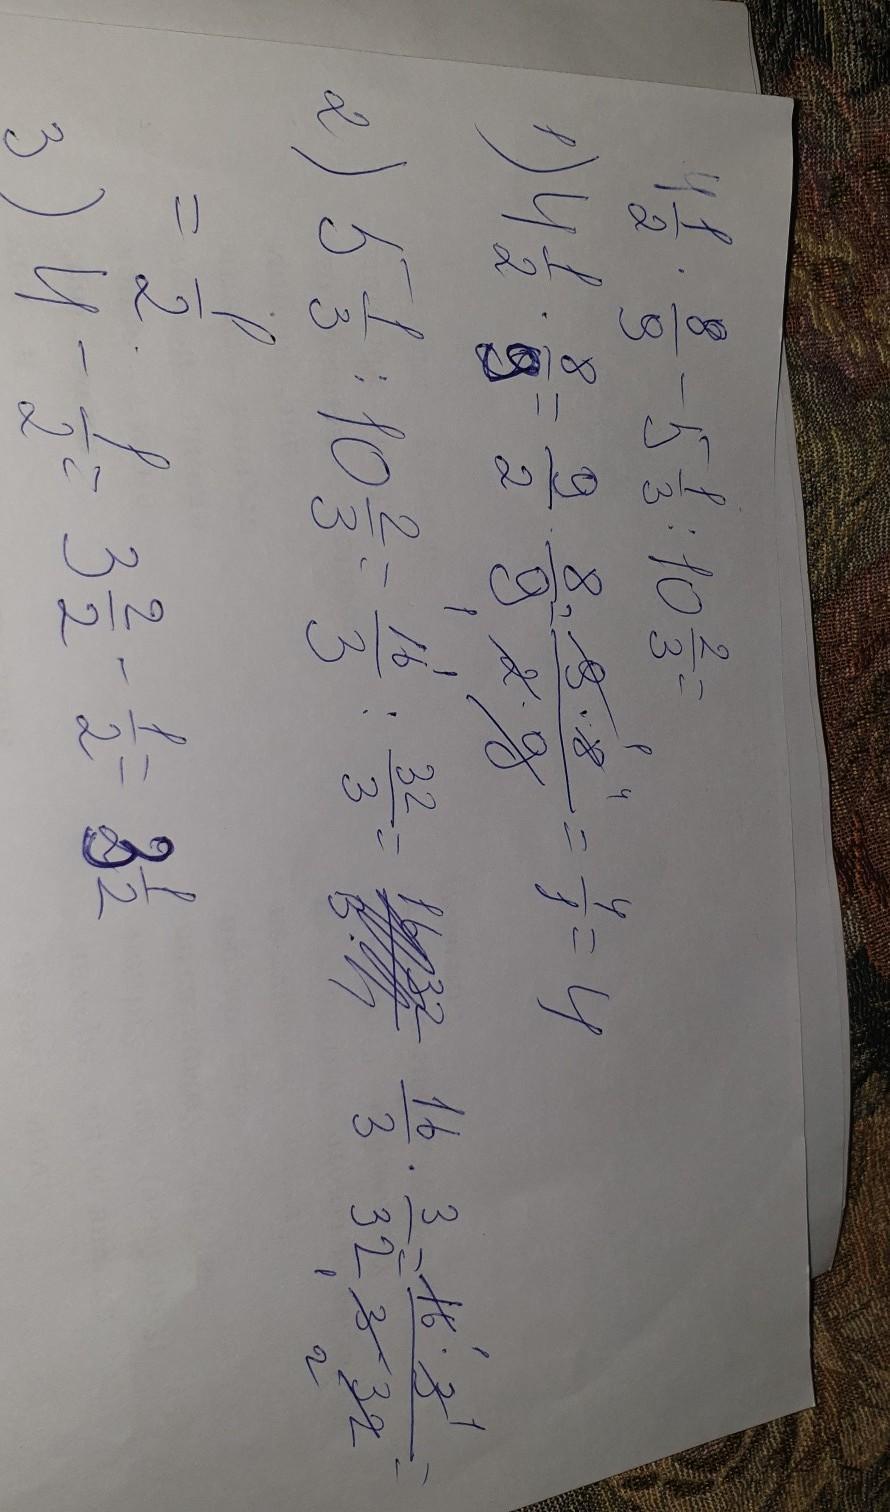 4 1/2 · 8/9 - 5 1/3 : 10 2/3 =
1) 4 1/2 · 8/9 = 9/2 · 8/9 = 9 · 8 / 2 · 9 = 4/1 = 4
2) 5 1/3 : 10 2/3 = 16/3 : 32/3 = 16/3 · 3/32 = 16 · 3 / 3 · 32 =
= 1/2
3) 4 - 1/2 = 3 2/2 - 1/2 = 3 1/2